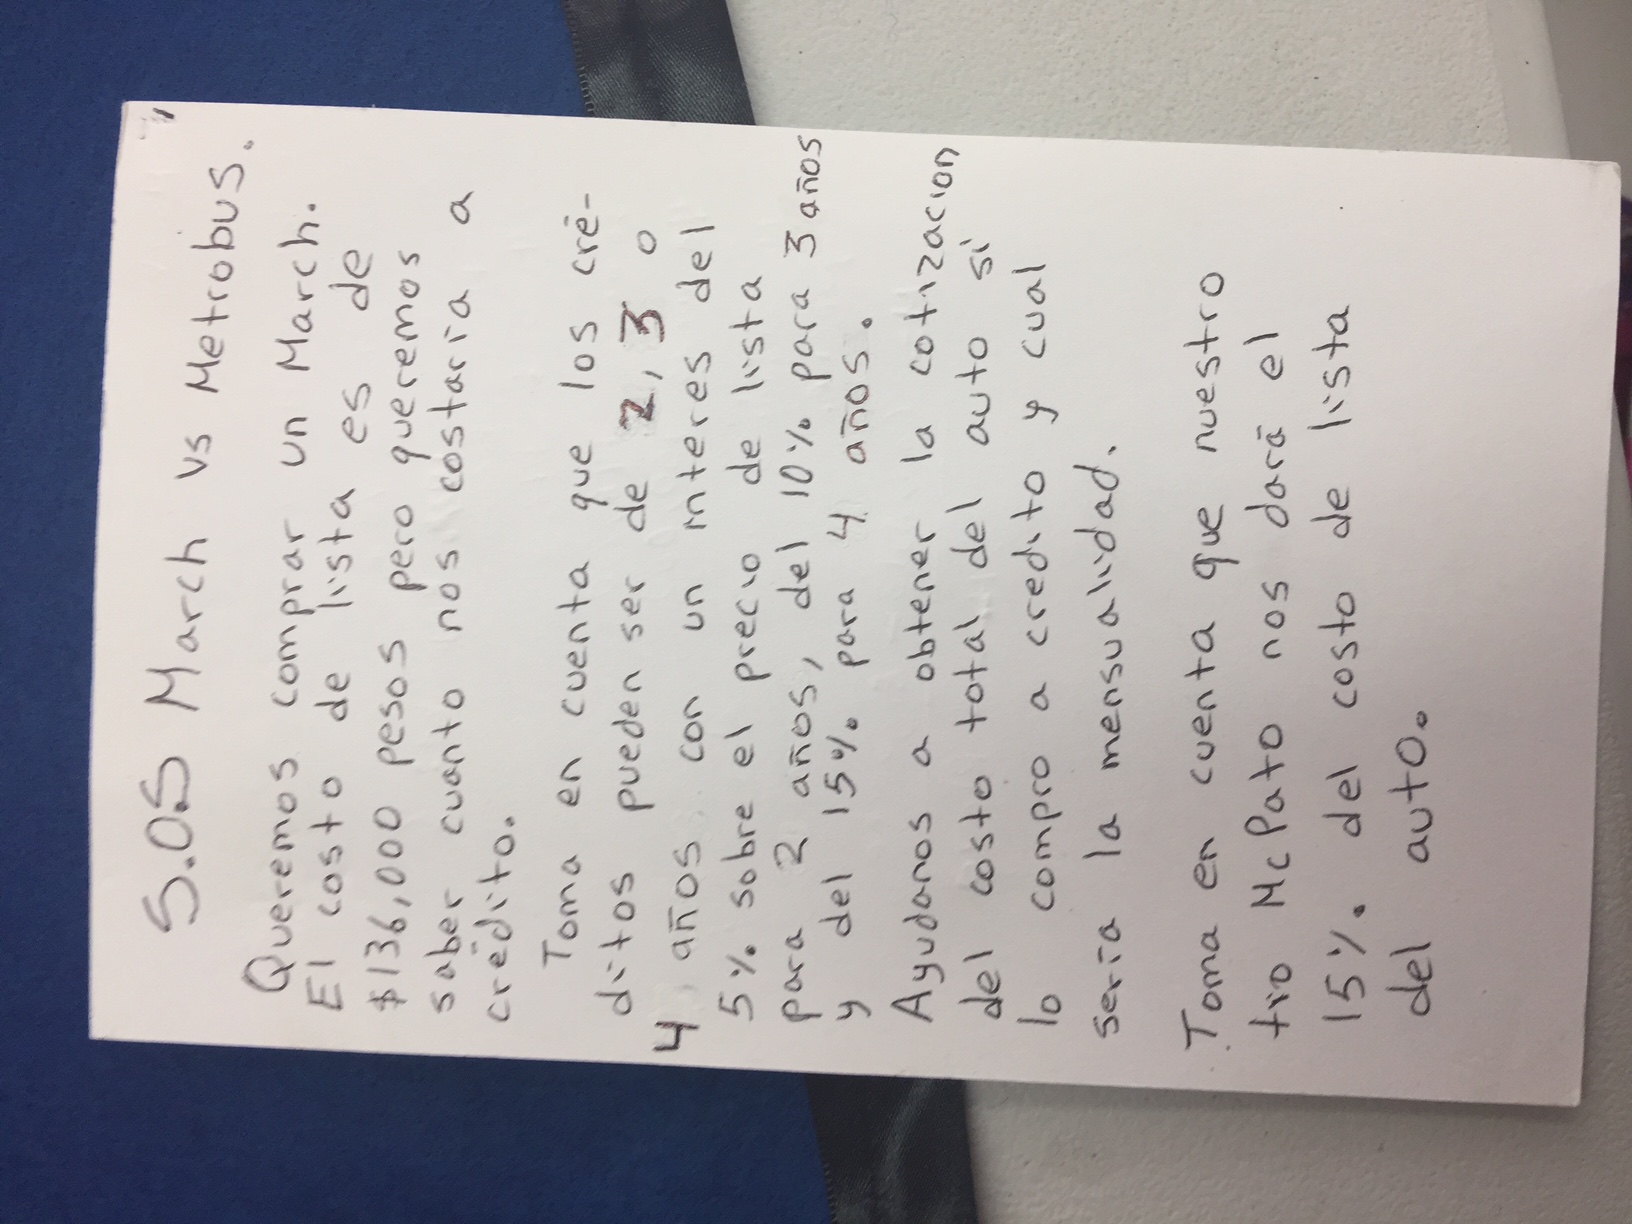 S.O.S March vs Metrobus.
Queremos comprar un March.
El costo de lista es de
$136,000 pesos pero queremos
saber cuanto nos costaría a
crédito.
Toma en cuenta que los cré-
ditos pueden ser de 2, 3 o
4 años con un interes del
5% sobre el precio de lista
para 2 años, del 10% para 3 años
y del 15% para 4 años.
Ayudanos a obtener la cotizacion
del costo total del auto si
lo compro a credito y cual
sería la mensualidad.
Toma en cuenta que nuestro
tío McPato nos dará el
15% del costo de lista
del auto.